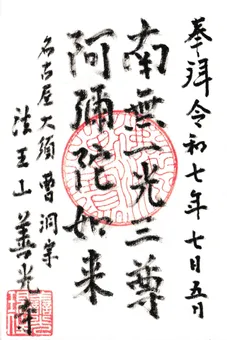 奉拜令和七年七月五日
南無一光三尊
阿彌陀如来
名古屋大須曹洞宗
法王山善光寺